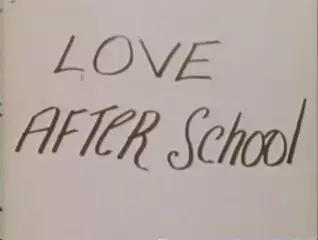 LOVE
AFTER School